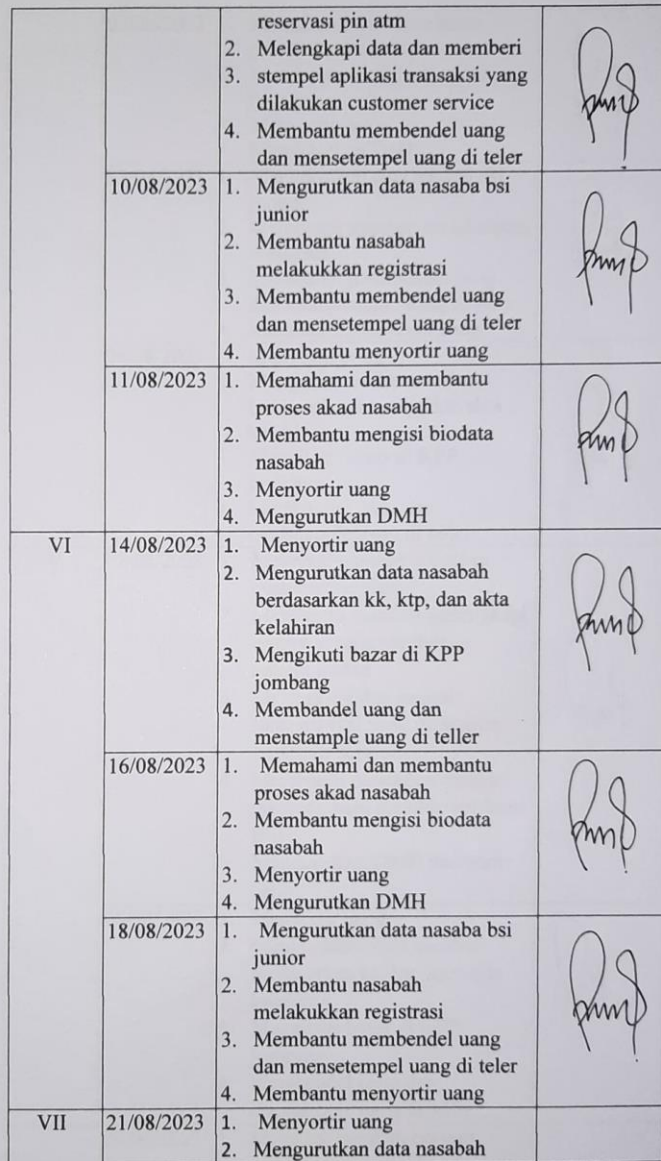 reservasi pin atm
2. Melengkapi data dan memberi
3. stempel aplikasi transaksi yang
dilakukan customer service
4. Membantu membendel uang
dan mensetempel uang di teler
10/08/2023 1. Mengurutkan data nasaba bsi
junior
2. Membantu nasabah
melakukkan registrasi
3. Membantu membendel uang
dan mensetempel uang di teler
4. Membantu menyortir uang
11/08/2023 1. Memahami dan membantu
proses akad nasabah
2. Membantu mengisi biodata
nasabah
3. Menyortir uang
4. Mengurutkan DMH
VI 14/08/2023 1. Menyortir uang
2. Mengurutkan data nasabah
berdasarkan kk, ktp, dan akta
kelahiran
3. Mengikuti bazar di KPP
jombang
4. Membandel uang dan
menstample uang di teller
16/08/2023 1. Memahami dan membantu
proses akad nasabah
2. Membantu mengisi biodata
nasabah
3. Menyortir uang
4. Mengurutkan DMH
18/08/2023 1. Mengurutkan data nasaba bsi
junior
2. Membantu nasabah
melakukkan registrasi
3. Membantu membendel uang
dan mensetempel uang di teler
4. Membantu menyortir uang
VII 21/08/2023 1. Menyortir uang
2. Mengurutkan data nasabah